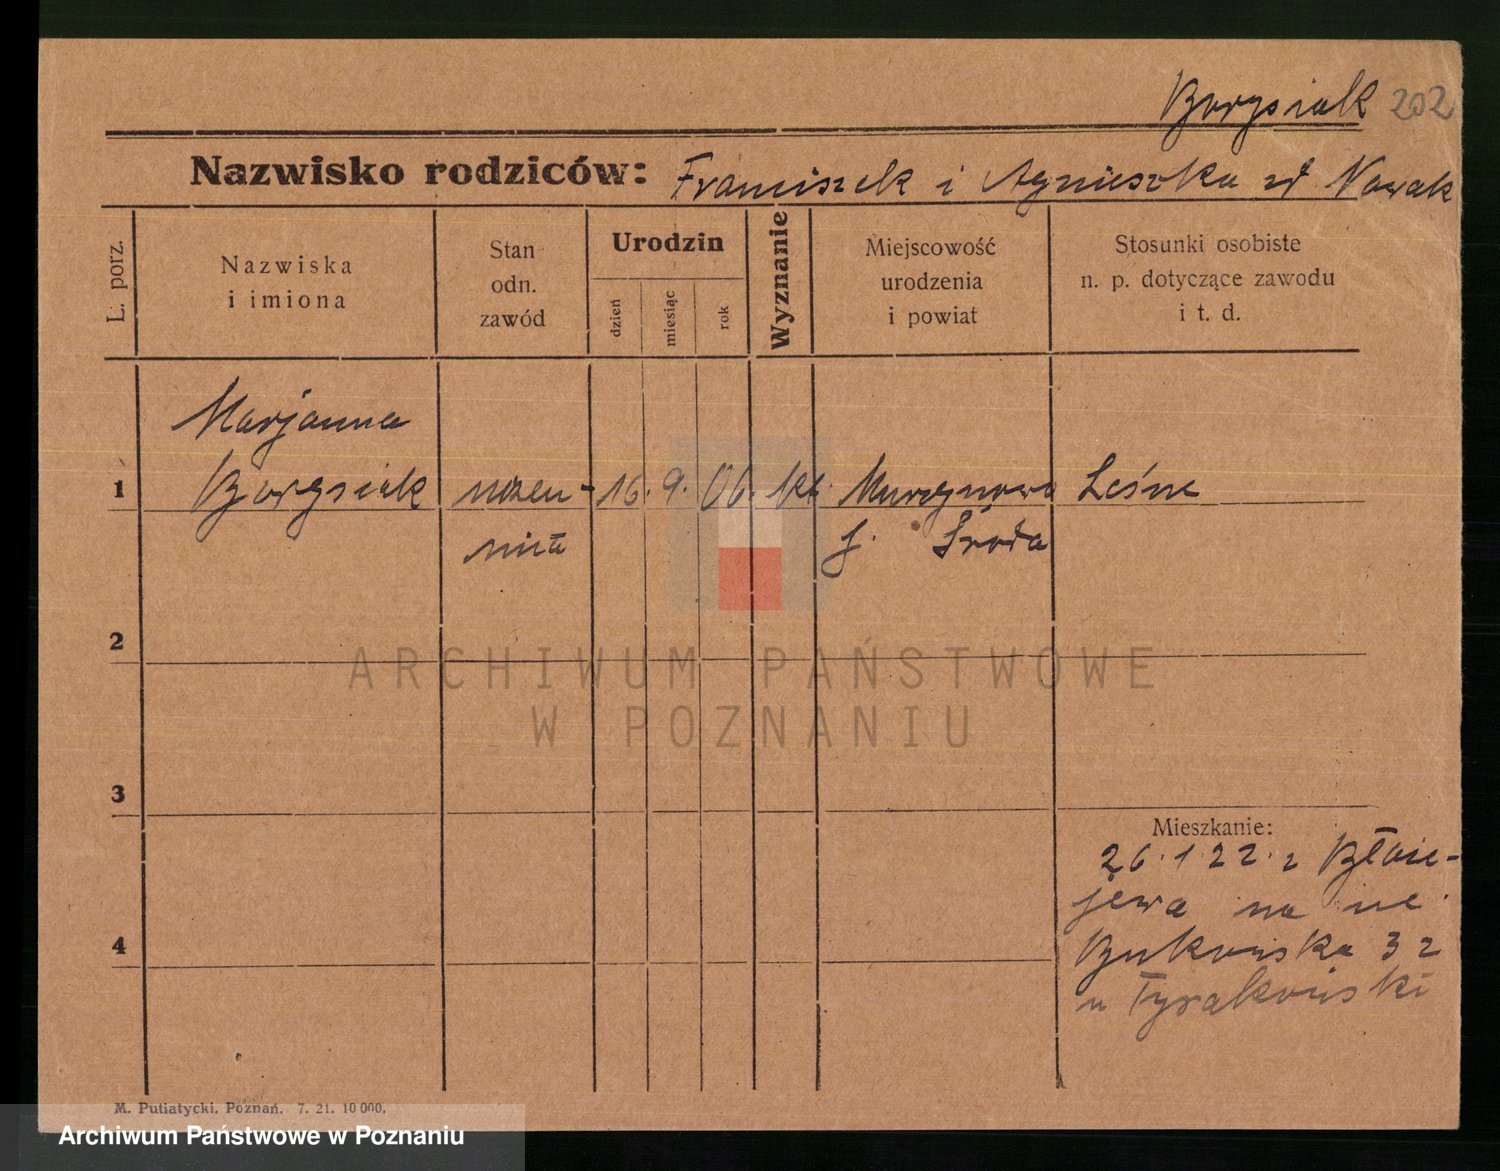 Borysiak 202
Nazwisko rodziców: Franciszek i Agnieszka zd Nowak
L. porz.
Nazwiska
i imiona
Stan
odn.
zawód
Urodzin
dzień
miesiąc
rok
Wyznanie
Miejscowość
urodzenia
i powiat
Stosunki osobiste
n. p. dotyczące zawodu
i t. d.
Marjanna
1 Borysiak uczen- 16. 9. 06. kt. Murzynowo Leśne
nica f. Środa
2
3
4
Mieszkanie:
26.1.22. z Błaże-
jewa na
Bukowska 32
u Tyrakowski
M. Putiatycki, Poznań. 7. 21. 10 000.
ARCHIWUM PAŃSTWOWE
W POZNANIU
Archiwum Państwowe w Poznaniu